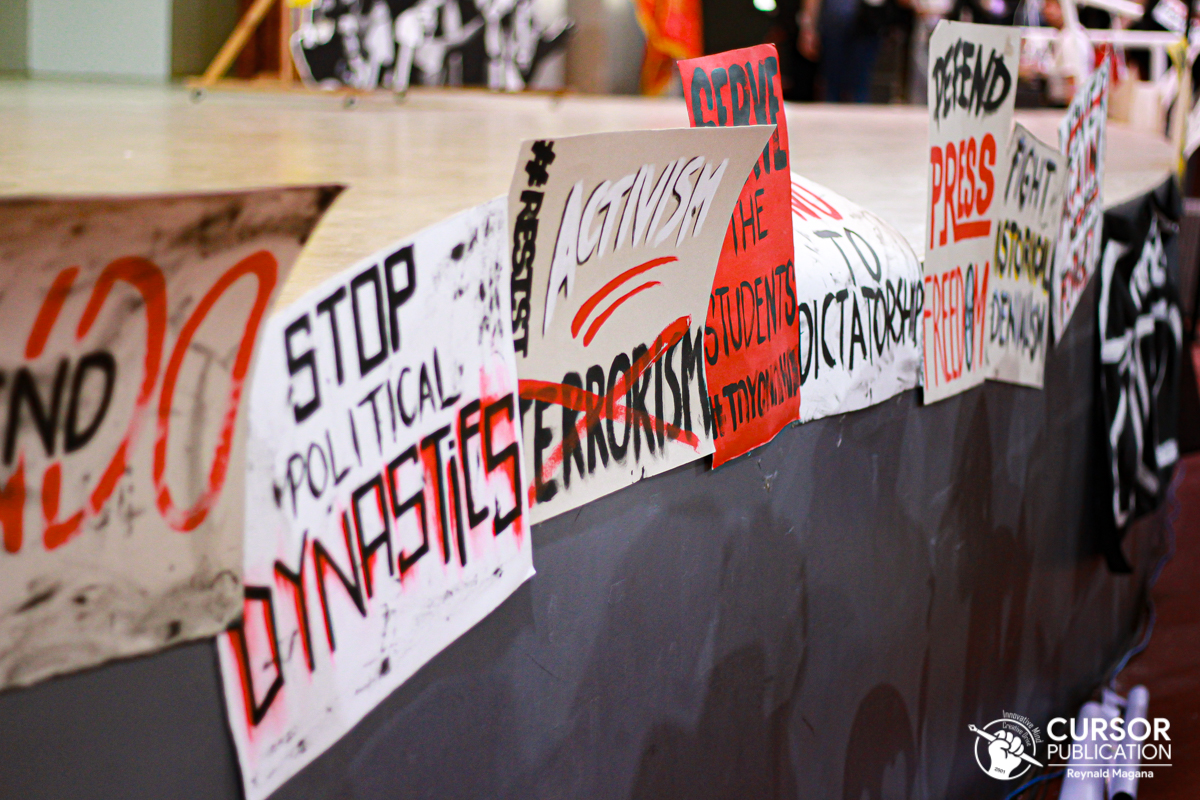 ND
STOP
POLITICAL
DYNASTIES
#RESIST
ACTIVISM
TERRORISM
SERVE
THE
STUDENTS
NO
TO
DICTATORSHIP
DEFEND
PRESS
FREEDOM
FIGHT
ISTORICAL
DENIALISM
Innovative Mind
CURSOR
PUBLICATION
Reynald Magana